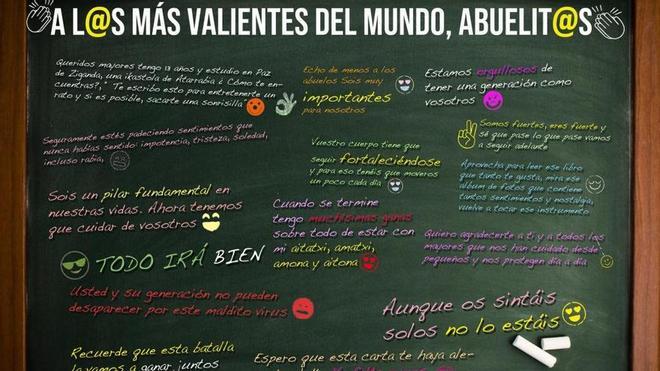 A L@S MÁS VALIENTES DEL MUNDO, ABUELIT@S
Queridos mayores tengo 13 años y estudio en Paz
de Ziganda, una ikastola de Atarrabia ¿ Cómo te en-
cuentras?," Te escribo esto para entretenerte un
rato y si es posible, sacarte una sonrisilla
Echo de menos a los
abuelos Sois muy
importantes
para nosotros
Estamos orgullosos de
tener una generación como
vosotros
Seguramente estés padeciendo sentimientos que
nunca habías sentido: impotencia, tristeza, soledad,
incluso rabia,
Vuestro cuerpo tiene que
seguir fortaleciéndose
y para eso tenéis que moveros
un poco cada día
Somos fuertes, eres fuerte y
sé que pase lo que pase vamos
a seguir adelante
Aprovecha para leer ese libro
que tanto te gusta, mira ese
álbum de fotos que contiene
tantos sentimientos y nostalgia,
vuelve a tocar ese instrumento
Sois un pilar fundamental en
nuestras vidas. Ahora tenemos
que cuidar de vosotros
Cuando se termine
tengo muchísimas ganas
sobre todo de estar con
mi aitatxi, amatxi,
amona y aitona
Quiero agradecerte a ti y a todos los
mayores que nos han cuidado desde
pequeños y nos protegen día a día
TODO IRÁ BIEN
Usted y su generación no pueden
desaparecer por este maldito virus
Aunque os sintáis
solos no lo estáis
Recuerde que esta batalla
la vamos a ganar juntos
Espero que esta carta te haya ale-